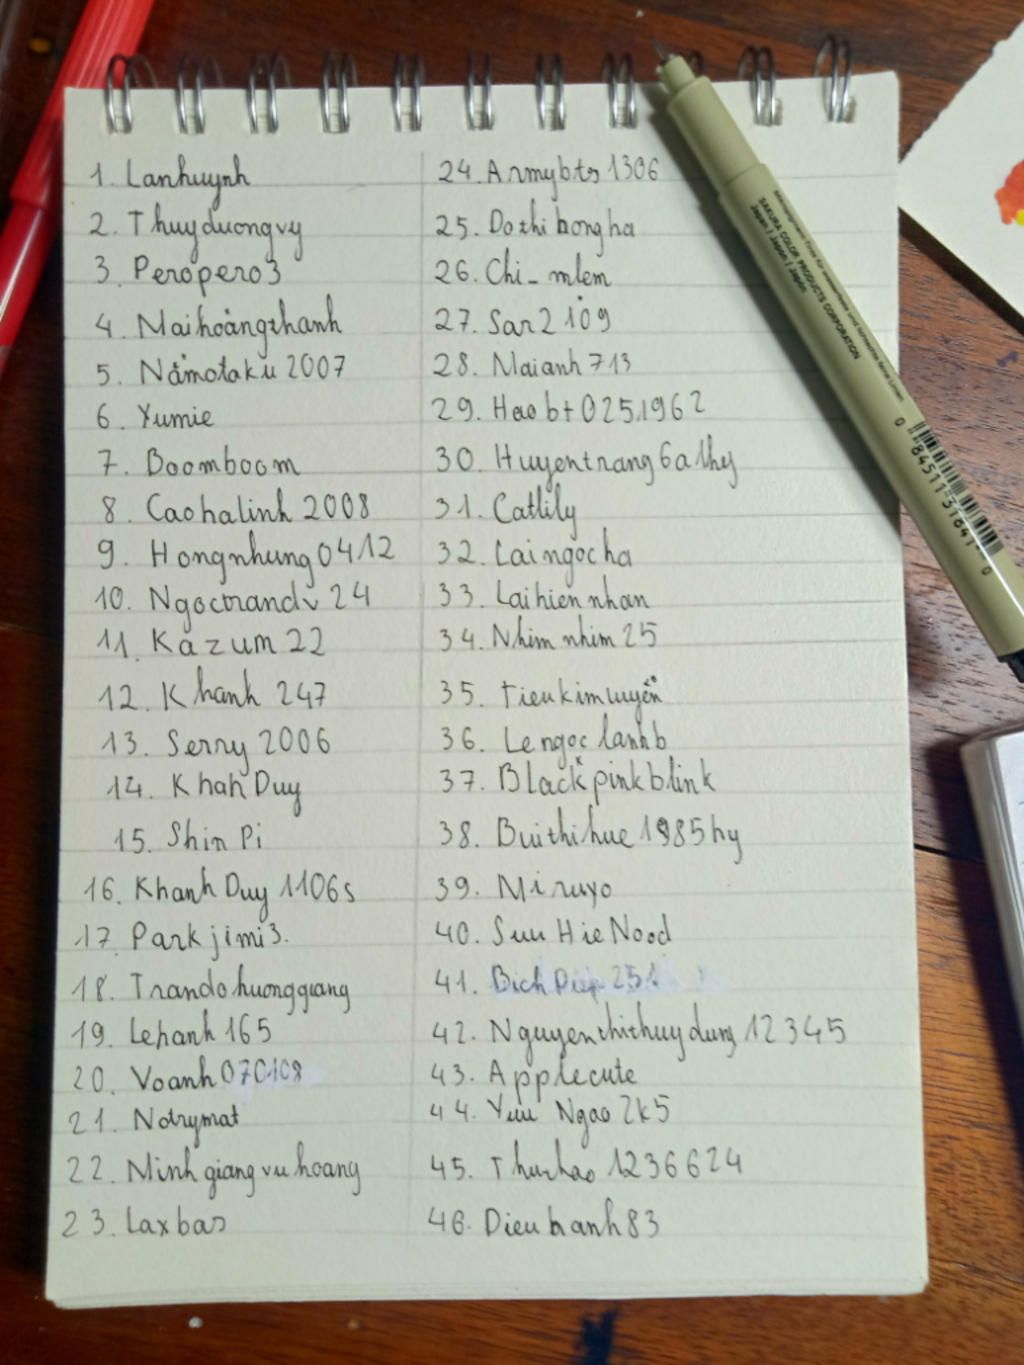 1. Lanhuynh
2. Thuyduongvy
3. Peropero3
4. Maihoàngthanh
5. Nấmotaku 2007
6. Yumie
7. Boomboom
8. Caohalinh 2008
9. Hongnhung0412
10. Ngoctrandv 24
11. Kazum 22
12. Khanh 247
13. Serry 2006
14. Khah Duy
15. Shin Pi
16. Khanh Duy 1106s
17. Park jimi3.
18. Trandohuonggiang
19. Lehanh 165
20. Voanh070108
21. Notrymat
22. Minhgiangvuhoang
23. Laxbas
24. Armybts 1306
25. Dothibongha
26. Chi_mlem
27. Sar2109
28. Maianh713
29. Haobt0251962
30. Huyentrang6a1hy
31. Catlily
32. Laingocha
33. Laihiennhan
34. Nhimnhim25
35. Tieukimluyến
36. Lengoclanhb
37. Blackpinkblink
38. Buithihue1985hy
39. Miruyo
40. Suu Hie Nood
41. Bich Diep 251
42. Nguyenthithuydung12345
43. Applecute
44. Yuu Ngao 2k5
45. 1236624
46. Dieuhanh83
SAKURA COLOR PRODUCTS CORPORATION
Japan / Japon / Japón
0 84511 31641 0